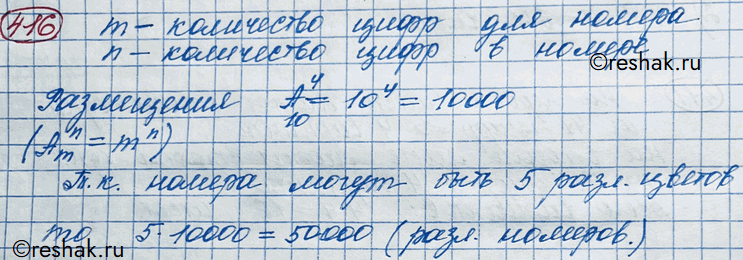 416 m – количество цифр для номера
n – количество цифр в номере
©reshak.ru
Размещения A⁴₁₀ = 10⁴ = 10000
(Aⁿₘ = mⁿ)
Т.к. номера могут быть 5 разл. цветов
то 5·10000 = 50000 (разл. номеров.)
©reshak.ru